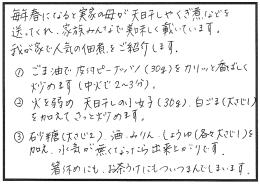 毎年春になると実家の母が天日干しやくぎ煮などを
送ってくれ、家族みんなで美味しく戴いています。
我が家で人気の佃煮をご紹介します。
① ごま油で皮付ピーナッツ(30g)をカリッと香ばしく
炒めます(中火で2~3分)。
② 火を弱め 天日干しの小女子(30g)、白ごま(大さじ1)
を加えてさっと炒めます。
③ 砂糖(大さじ2)、酒、みりん、しょうゆ(各大さじ1)を
加え、水気が無くなったら出来上がりです。
箸休めにも、お茶うけにもついつまんでしまいます。